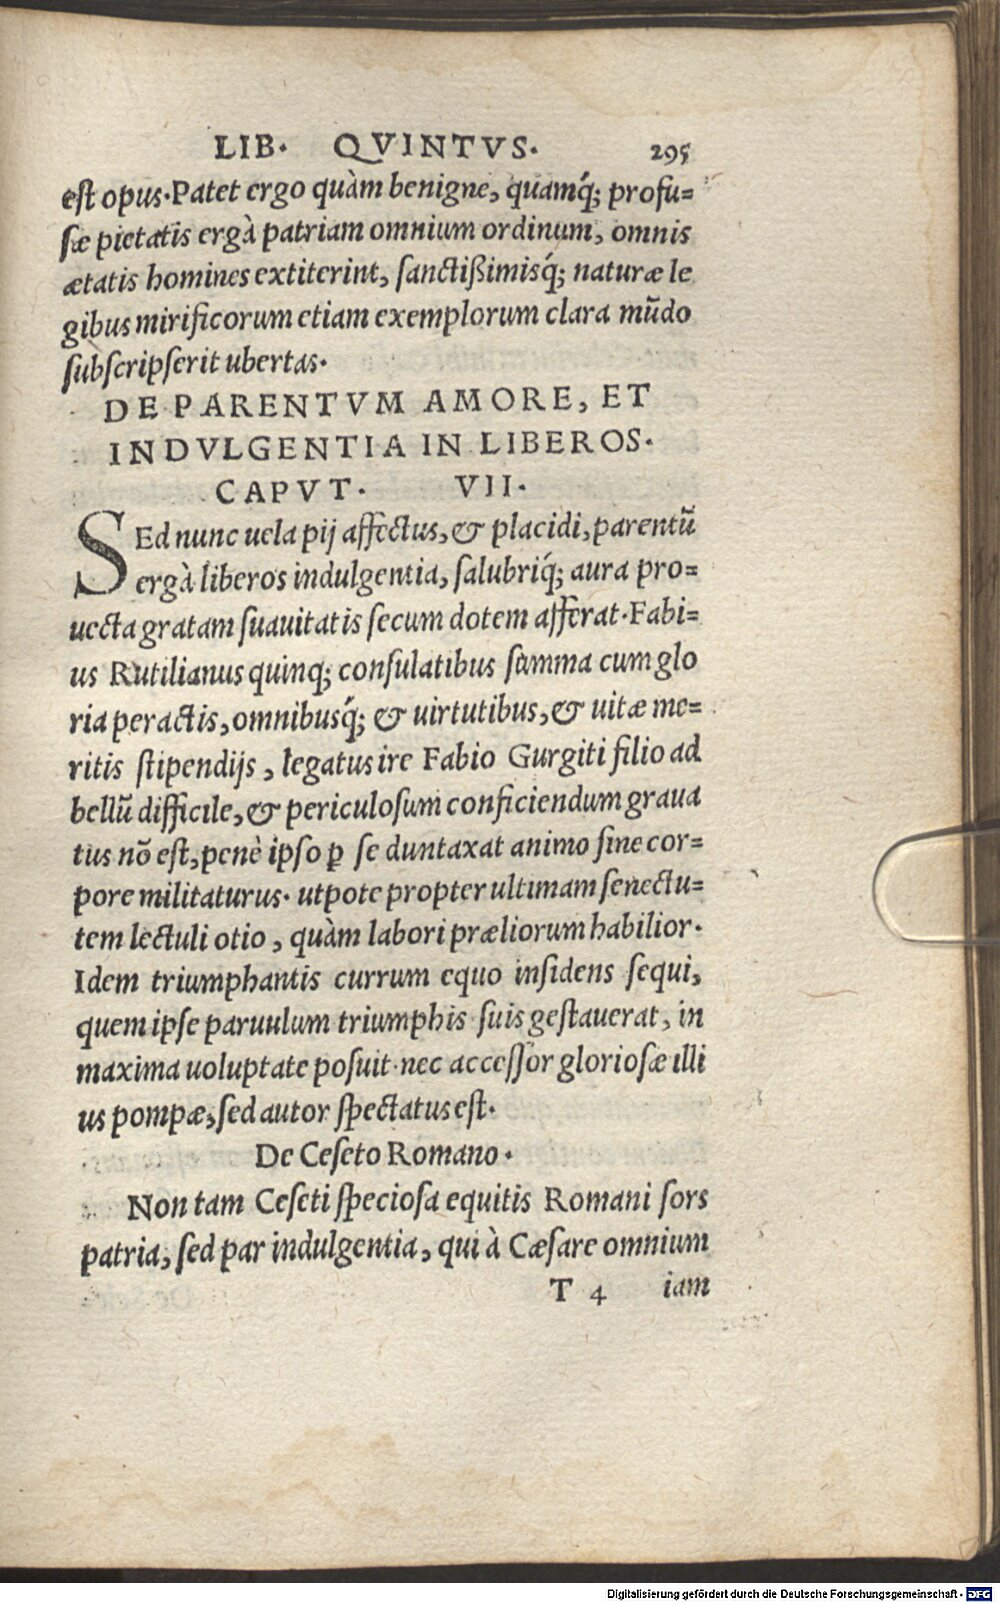 LIB. QVINTVS. 295
est opus. Patet ergo quàm benigne, quamq́; profu=
sæ pietatis ergà patriam omnium ordinum, omnis
ætatis homines extiterint, sanctißimisq́; naturæ le
gibus mirificorum etiam exemplorum clara mũdo
subscripserit ubertas.
DE PARENTVM AMORE, ET
INDVLGENTIA IN LIBEROS.
CAPVT. VII.
SEd nunc uela pij affectus, & placidi, parentũ
ergà liberos indulgentia, salubriq́; aura pro=
uecta gratam suauitatis secum dotem afferat. Fabi=
us Rutilianus quinq; consulatibus summa cum glo
ria peractis, omnibusq́; & uirtutibus, & uitæ me=
ritis stipendijs, legatus ire Fabio Gurgiti filio ad
bellũ difficile, & periculosum conficiendum graua
tus nõ est, penè ipso ꝑ se duntaxat animo sine cor=
pore militaturus. utpote propter ultimam senectu=
tem lectuli otio, quàm labori præliorum habilior.
Idem triumphantis currum equo insidens sequi,
quem ipse paruulum triumphis suis gestauerat, in
maxima uoluptate posuit. nec accessor gloriosæ illi
us pompæ, sed autor spectatus est.
De Ceseto Romano.
Non tam Ceseti speciosa equitis Romani sors
patria, sed par indulgentia, qui à Cæsare omnium
T 4 iam
Digitalisierung gefördert durch die Deutsche Forschungsgemeinschaft - DFG